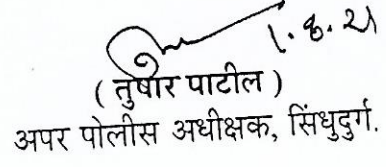 १.८.२१
( तुषार पाटील )
अपर पोलीस अधीक्षक, सिंधुदुर्ग.